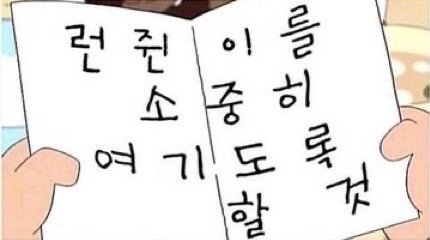 런쥔이를
소중히
여기도록
할것